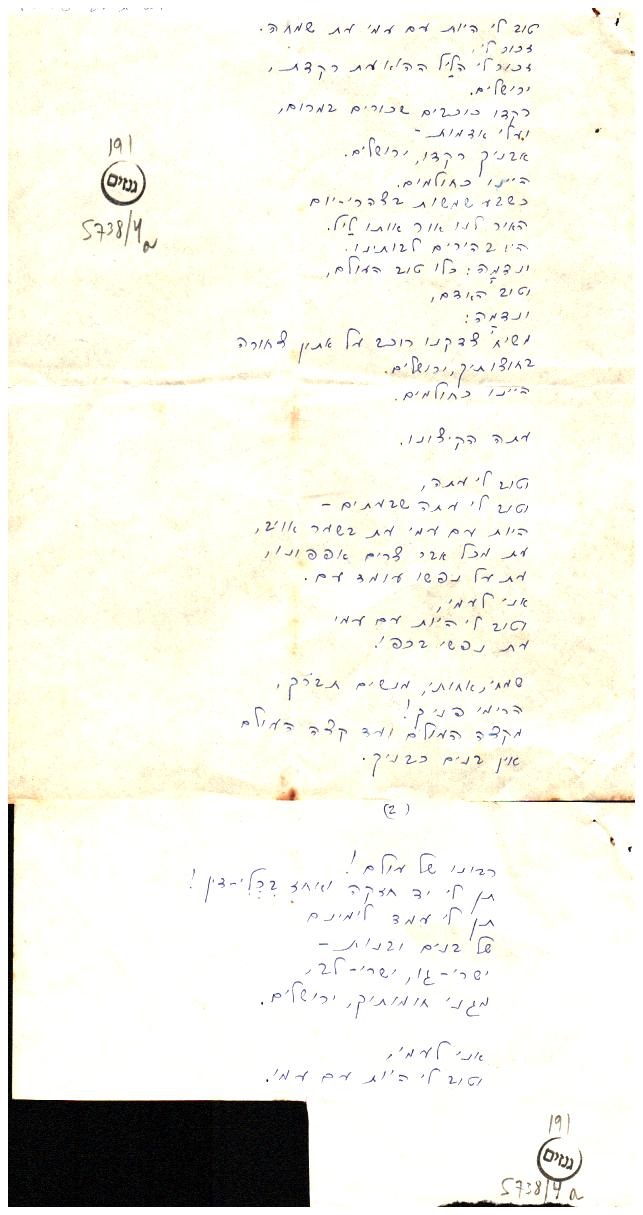 טוב לי היות עם עמי עת שמחה.
זכור לי,
זכור לי הלַיל ההוא עת רקדת,
ירושלים.
רקדו כוכבים שכורים במרום,
ועלי אדמות –
אבניך רקדו, ירושלים.
היינו כחולמים.
כשבע שמשות בצהרי-יום
האיר לנו אור אותו לַיל.
היו בהירים לבותינו.
ונדמָה: כלו טוב העולם,
וטוב האדם,
ונדמָה:
משיח צדקנו רוכב על אתון צחורה
בחוצותיך, ירושלים.
היינו כחולמים.
עתה הקיצונו.
וטוב לי עתה,
וטוב לי עתה שבעתים –
היות עם עמי עת בשער אויב,
עת מכל עבר צרים אפפונו,
עת על נפשו עומד עם.
אני לעמי,
וטוב לי היות עם עמי
עת נפשי בכפי!
שמחי, אחותי, מנשים תבֹרך,
הרימי פניך!
מקצה העולם ועד קצה העולם
אין בנים כבניך.
191
גנזים
5738/4 a
(2)
רבונו של עולם!
תן לי יד חזקה ואחז בִּכְלֵי-זין!
תן לי עמד לימינם
של בנים ובנות –
ישרי-גו, ישרי-לב,
מגני חומותיך, ירושלים.
אני לעמי,
וטוב לי היות עם עמי.
191
גנזים
5738/4 a